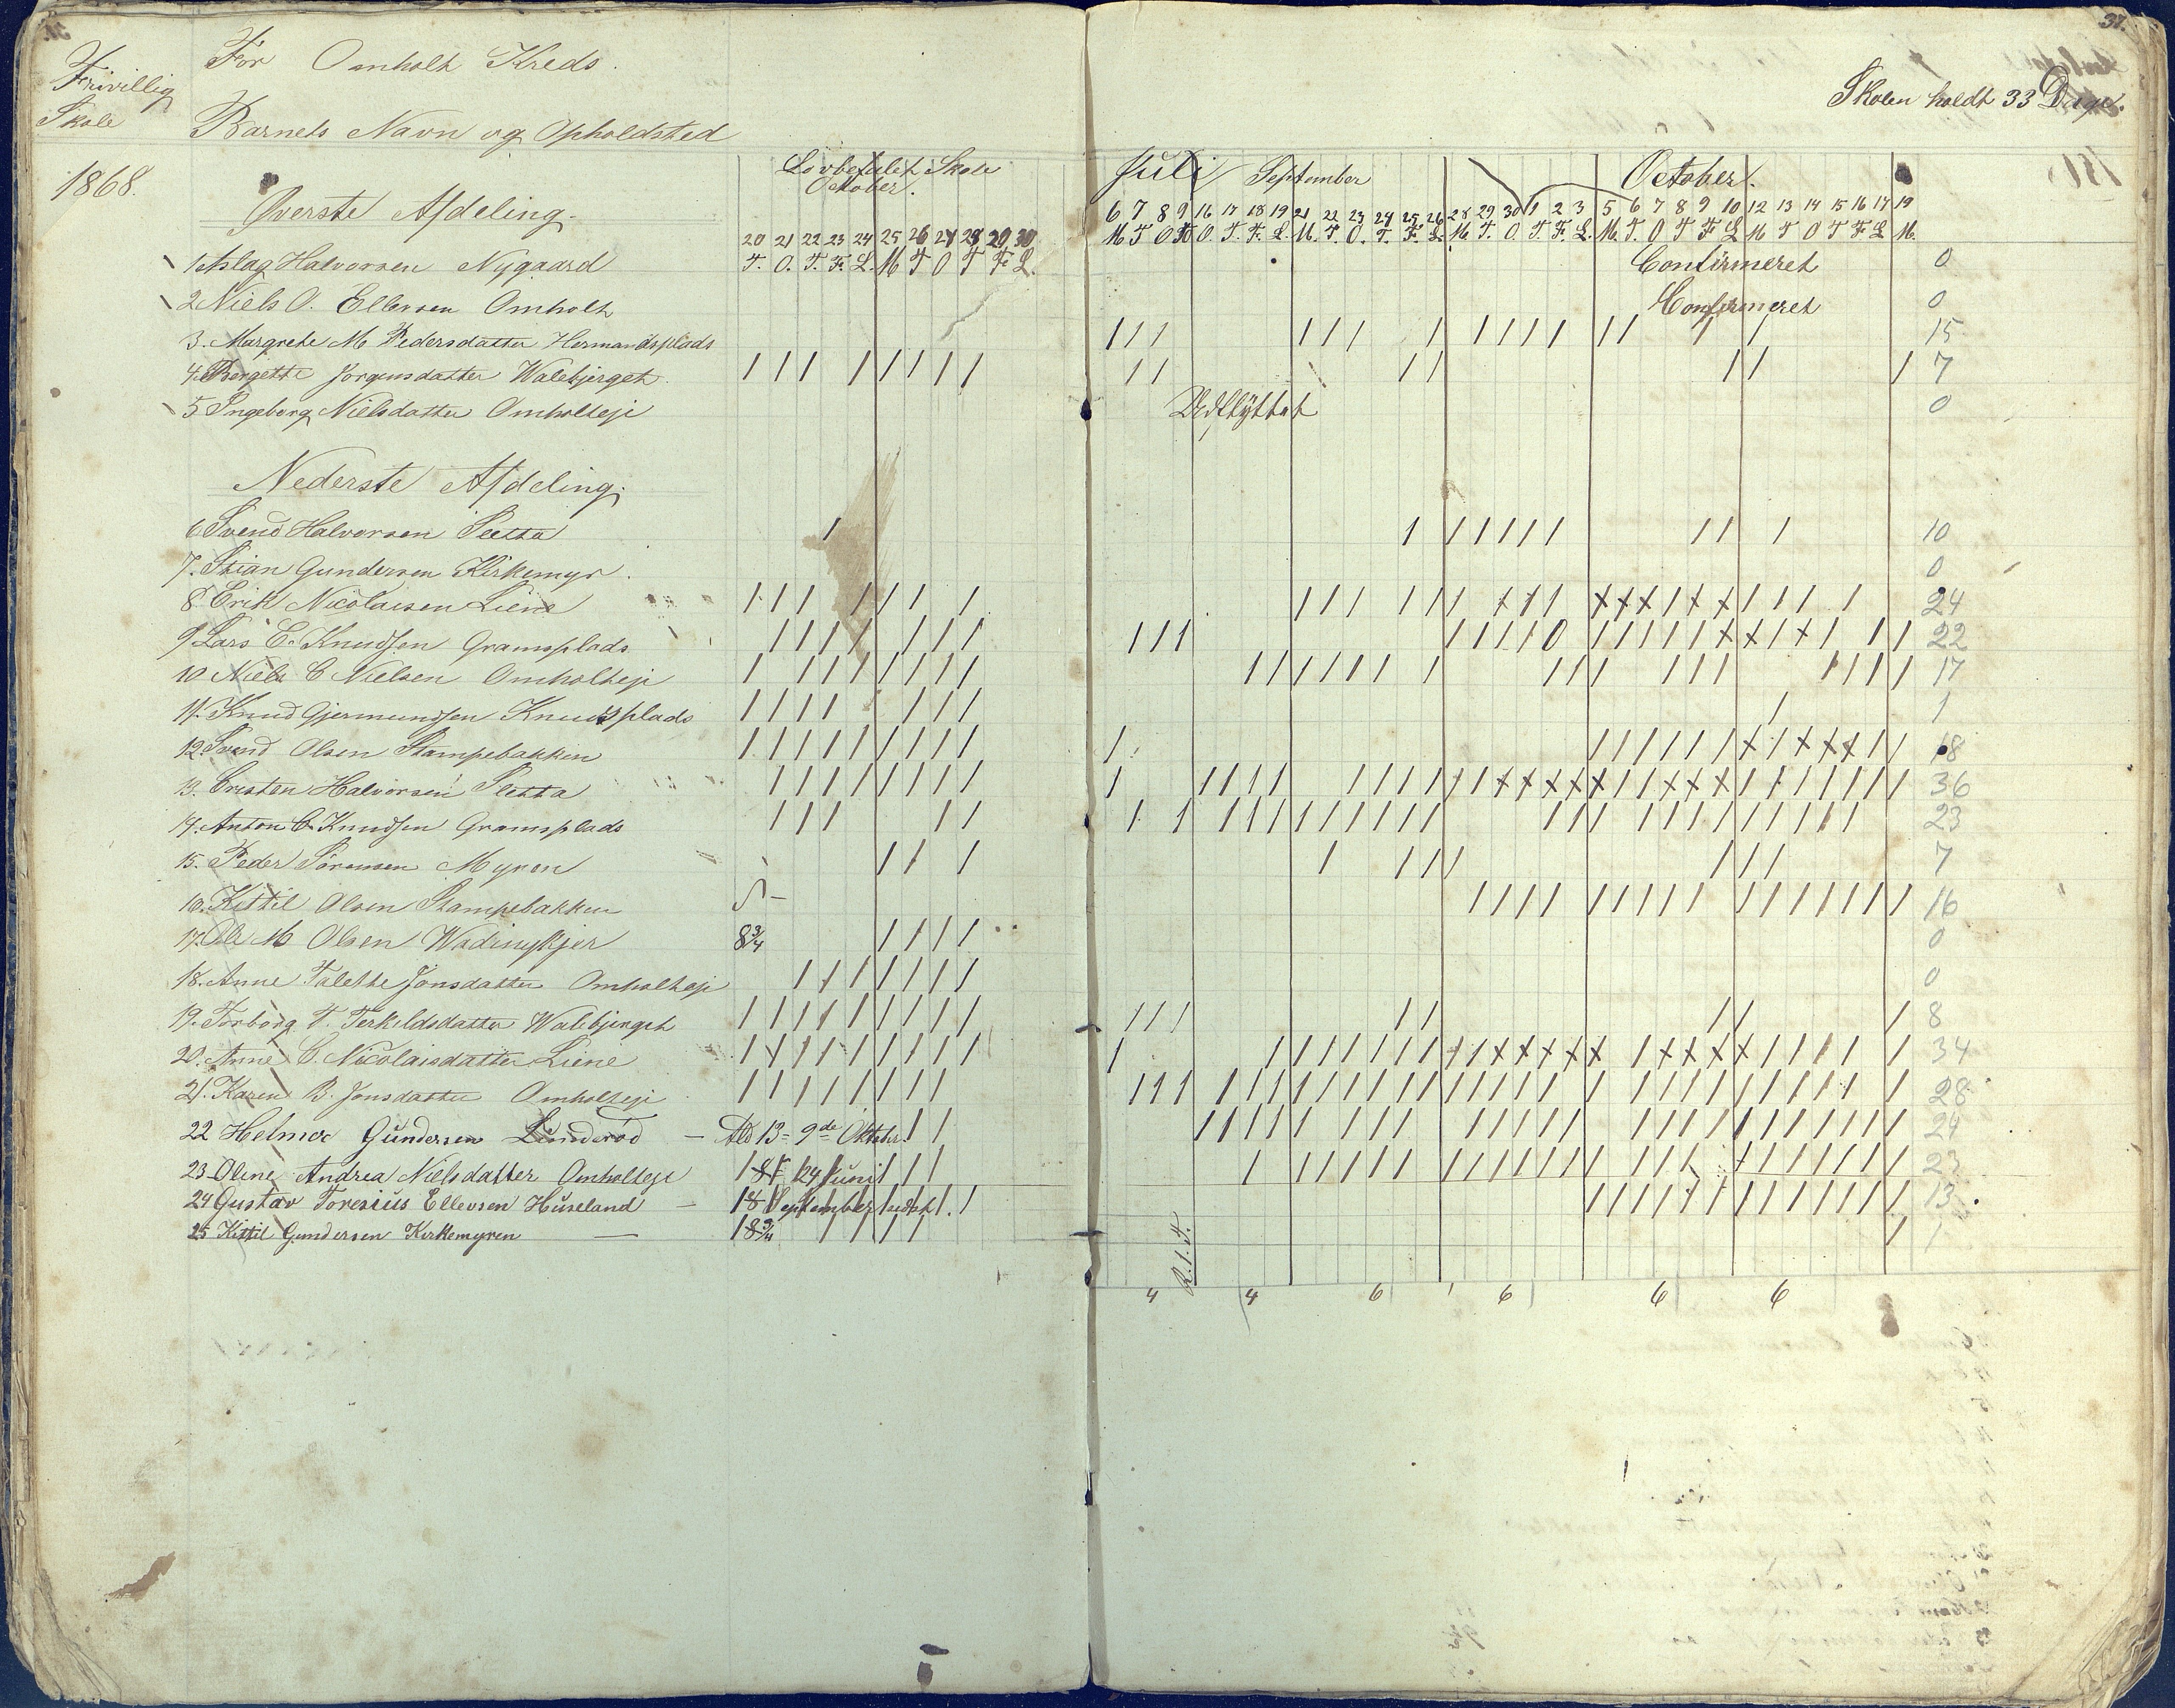 Frivillig
Skole
1868.
For Omholt Kreds.
Barnets Navn og Opholdsted
Lovbefalet Skole
October.
20 21 22 23 24 25 26 27 28 29 30
T. O. T. F. L. M T O T F. L.
Øverste Afdeling.
1 Aslag Halvorsen Nygaard
2 Niels O. Ellevsen Omholt
3. Margrethe M Pedersdatter Hermandsplads
4. Bergette Jørgensdatter Walebjerget
5 Ingeborg Nielsdatter Omholteje
Nederste Afdeling.
6 Svend Halvorsen Sletta
7. Stian Gundersen Kirkemyr.
8 Erik Nicolaisen Liene
9 Lars C. Knudsen Gramsplads
10 Niels C Nielsen Omholteje
11. Knud Gjermundsen Knudsplads
12. Svend Olsen Stampebakken
13. Cristen Halvorsen Sletta
14. Anton C. Knudsen Gramsplads
15. Peder Sørensen Myren
16. Kittil Olsen Stampebakken
17. Ole M Olsen 8 3/4
18. Anne Talette Jonsdatter Omholteje
19. Torborg T. Terkeldsdatter Walebjerget
20. Anne C. Nicolaisdatter Liene
21. Karen B. Jonsdatter Omholteje
22 Helmer Gundersen Linderød — 13 = 9de Oktobr.
23 Oline Andrea Nielsdatter Omholteje 8 24 Juni
24 Gustav Toresius Ellevsen Huseland — 8 September
25 Kittil Gundersen Kirkemyren — 8 3/4
37.
Skolen holdt 33 Dage.
Juli September October.
6 7 8 9 16 17 18 19 21 22 23 24 25 26 28 29 30 1 2 3 5 6 7 8 9 10 12 13 14 15 16 17 19
M T O T O. T. F. L. M. T. O. T. F. L. M. T. O. T. F. L. M. T. O T F L M T O T F L M.
Confirmeret 0
Confirmeret 0
15
7
Udflyttet 0
10
0
24
22
17
1
18
36
23
7
16
0
0
8
34
28
24
23
13.
1
4 4 6 6 6 6